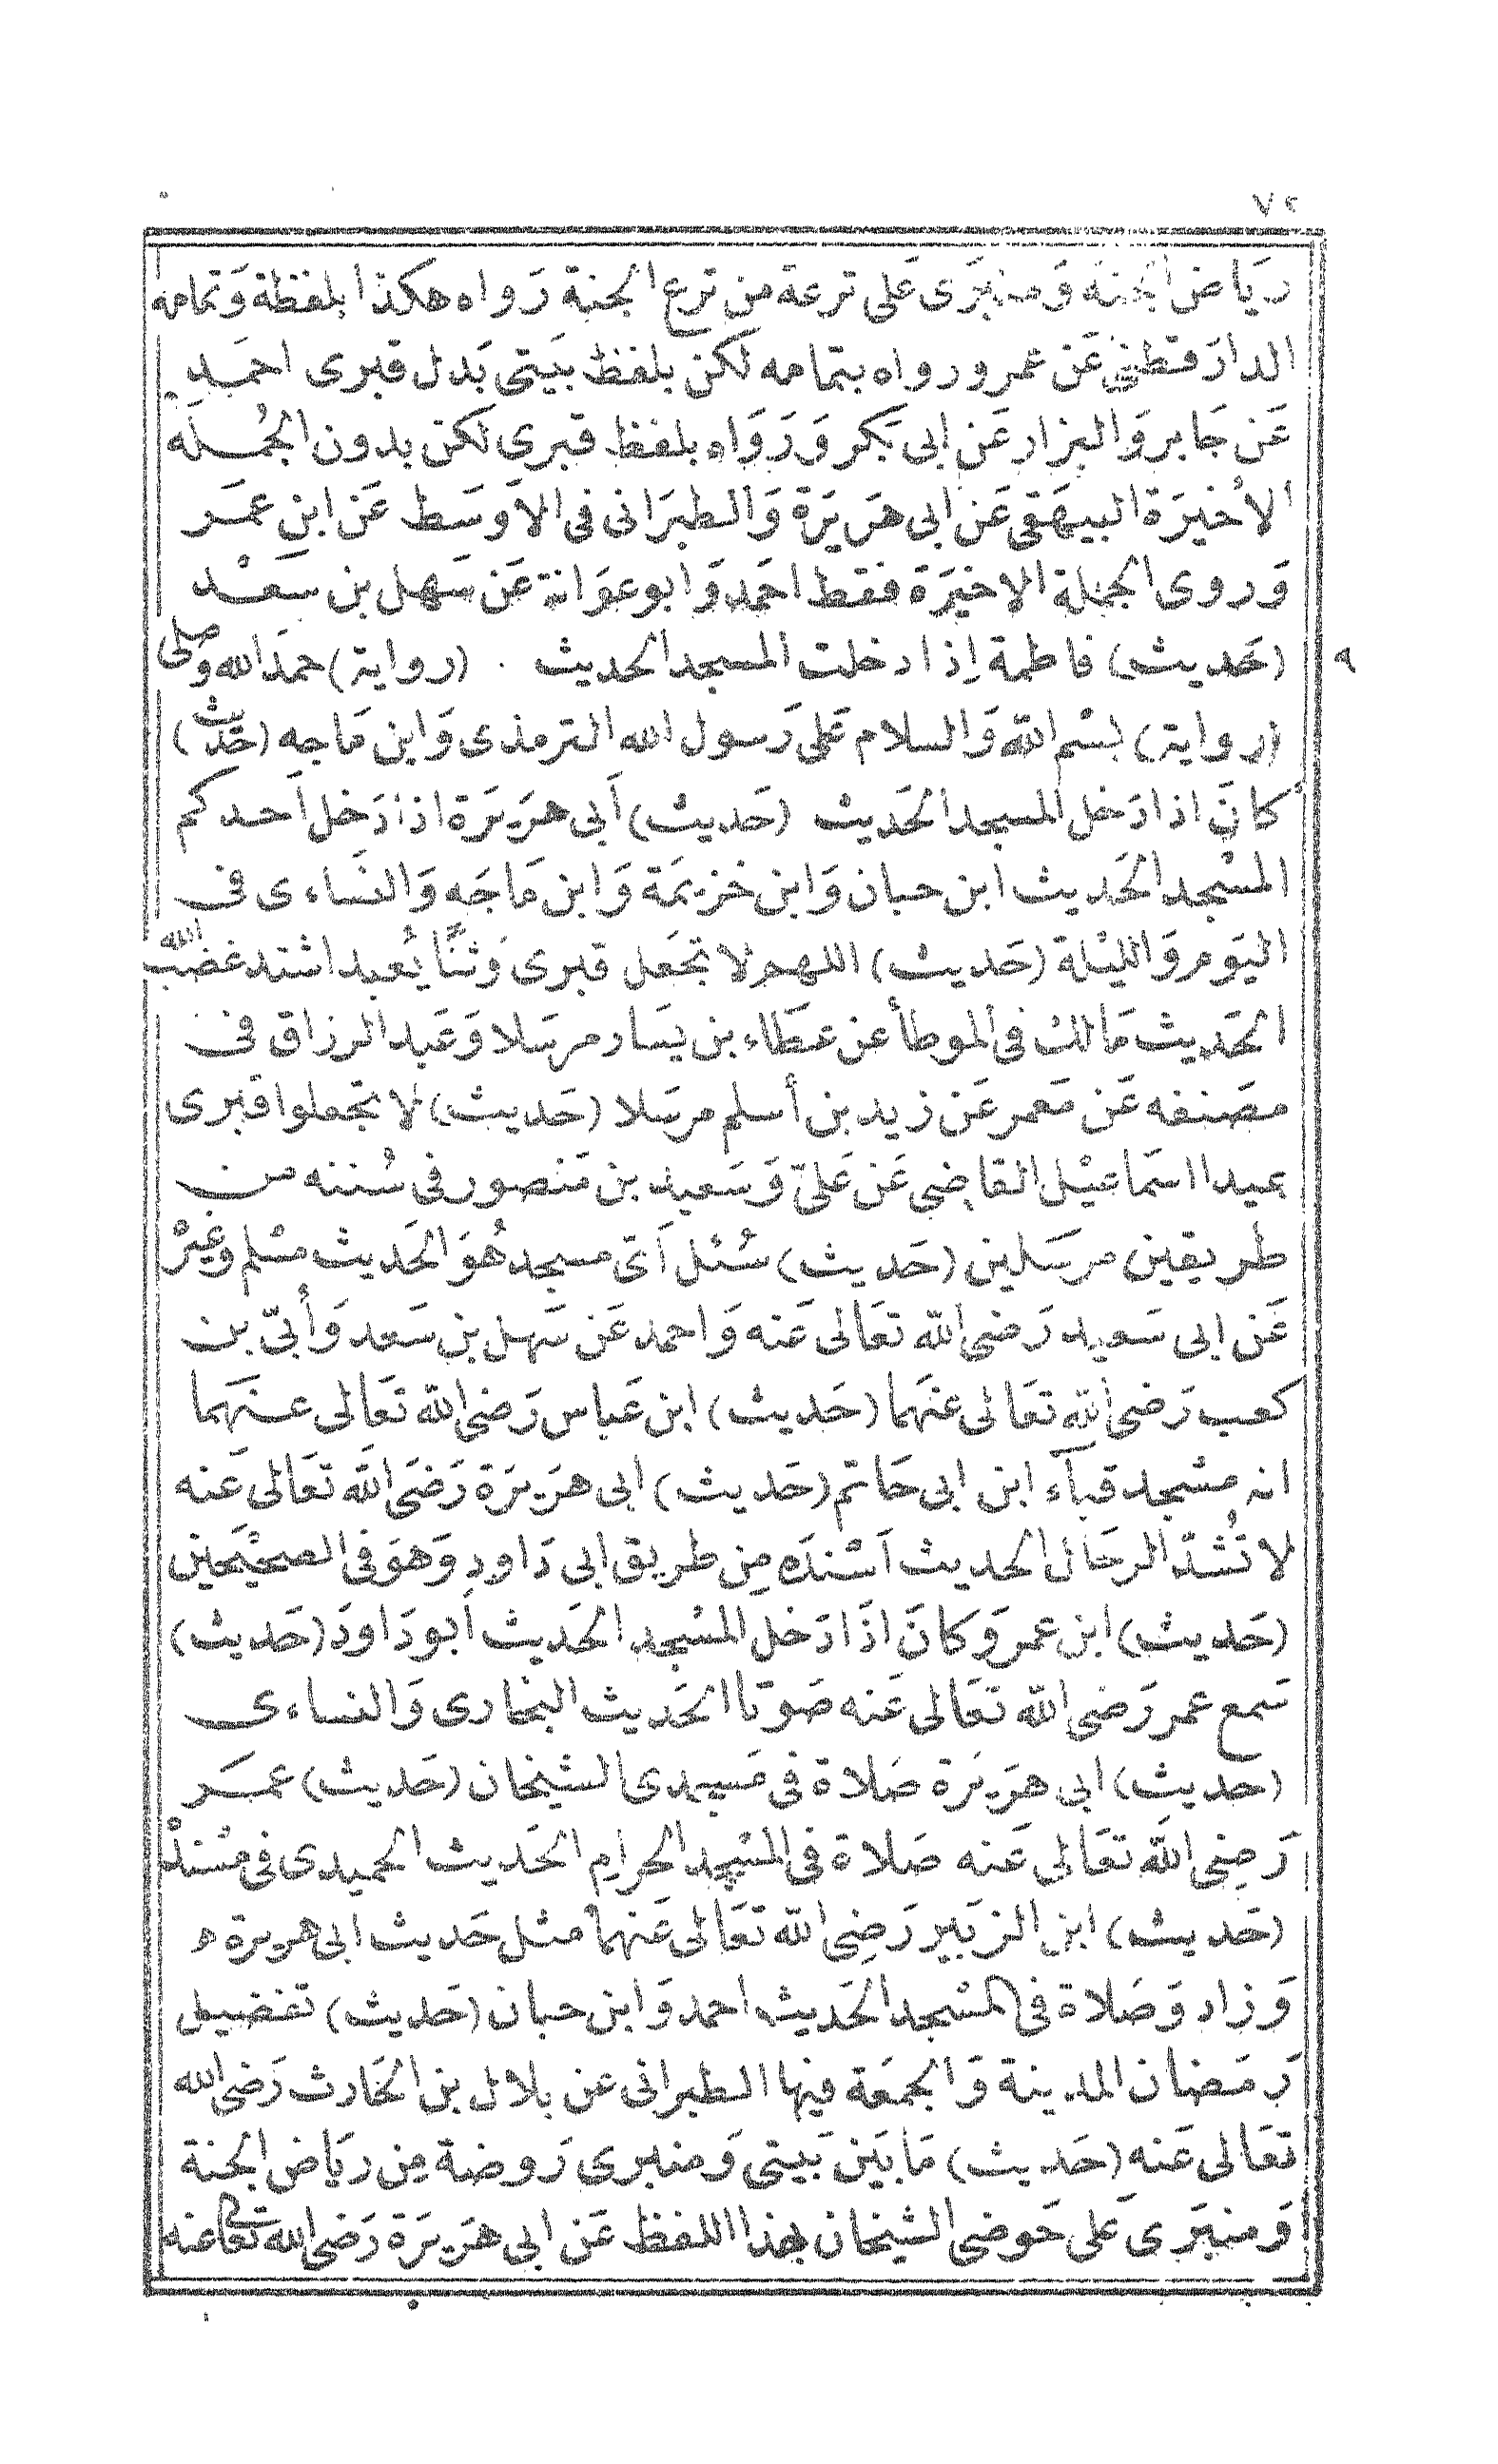 ٧٢
رياض الجنة ومنبرى على ترعة من ترع الجنة رواه هكذا بلفظة وتمامه
الدارقطني عن عمرو رواه بتمامه لكن بلفظ بيتى بدل قبرى احمد
عن جابر والبزار عن ابى بكر ورواه بلفظ قبرى لكن بدون الجملة
الأخيرة البيهقى عن ابى هريرة والطبرانى فى الأوسط عن ابن عمر
وروى الجملة الاخيرة فقط احمد وابو عوانة عن سهل بن سعد
(حديث) فاطمة إذا دخلت المسجد الحديث . (رواية) حمد الله وصلى
٩
(رواية) بسم الله والسلام على رسول الله الترمذى وابن ماجه (حديث)
كان اذا دخل المسجد الحديث (حديث) أبى هريرة اذا دخل أحدكم
المسجد الحديث ابن حبان وابن خزيمة وابن ماجه والنساءى فى
اليوم والليلة (حديث) اللهم لا تجعل قبرى وثنًا يُعبد اشتد غضب الله
الحديث مالك فى الموطأ عن عطاء بن يسار مرسلا وعبد الرزاق فى
مصنفه عن معمر عن زيد بن أسلم مرسلا (حديث) لا تجعلوا قبرى
عيدا اسماعيل القاضى عن علىّ وسعيد بن منصور فى سُننه من
طريقين مرسلين (حديث) سُئل أىّ مسجد هُوَ الحديث مسلم وغيرْ
عن ابى سعيد رضى الله تعالى عنه واحمد عن سهل بن سعد وأُبىّ بن
كعب رضى الله تعالى عنهما (حديث) ابن عباس رضى الله تعالى عنهما
انه مسجد قبآء ابن ابى حاتم (حديث) ابى هريرة رضى الله تعالى عنه
لا تُشدّ الرحال الحديث أسنده من طريق ابى داود وهو فى الصحيحين
(حديث) ابن عمر وكان اذا دخل المسجد الحديث أبو داود (حديث)
سمع عمر رضى الله تعالى عنه صوتا الحديث البخارى والنساءى
(حديث) ابى هريرة صلاة فى مسجدى الشيخان (حديث) عمر
رضى الله تعالى عنه صلاة فى المسجد الحرام الحديث الحميدى فى مسنده
(حديث) ابن الزبير رضى الله تعالى عنهما مثل حديث ابى هريرة ه
وزاد وصلاة فى المسجد الحديث احمد وابن حبان (حديث) تفضيل
رمضان المدينة والجمعة فيها الطبرانى عن بلال بن الحارث رضى الله
تعالى عنه (حديث) ما بين بيتى ومنبرى روضة من رياض الجنة
ومنبرى على حوضى الشيخان بهذا اللفظ عن ابى هريرة رضى الله تعالى عنه